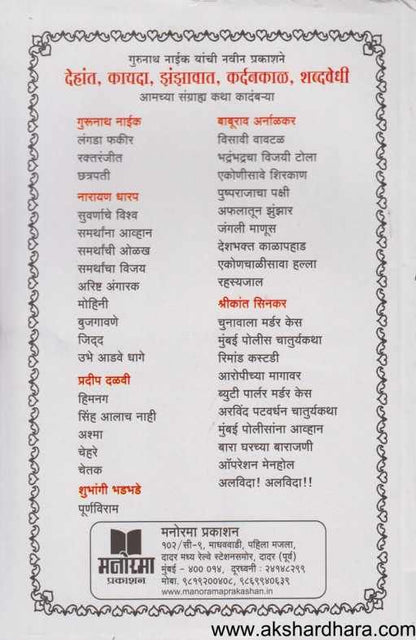 गुरुनाथ नाईक यांची नवीन प्रकाशने
देहांत, कायदा, झंझावात, कर्दनकाळ, शब्दवेधी
आमच्या संग्राह्य कथा कादंबऱ्या
गुरूनाथ नाईक
लंगडा फकीर
रक्तरंजीत
छत्रपती
नारायण धारप
सुवर्णाचे विश्व
समर्थांना आव्हान
समर्थांची ओळख
समर्थांचा विजय
अरिष्ट अंगारक
मोहिनी
बुजगावणे
जिद्द
उभे आडवे धागे
प्रदीप दळवी
हिमनग
सिंह आलाच नाही
अश्मा
चेहरे
चेतक
शुभांगी भडभडे
पूर्णविराम
बाबूराव अर्नाळकर
विसावी वावटळ
भद्रंभद्रचा विजयी टोला
एकोणीसावे शिरकाण
पुष्पराजाचा पक्षी
अफलातून झुंझार
जंगली माणूस
देशभक्त काळापहाड
एकोणचाळीसावा हल्ला
रहस्यजाल
श्रीकांत सिनकर
चुनावाला मर्डर केस
मुंबई पोलीस चातुर्यकथा
रिमांड कस्टडी
आरोपीच्या मागावर
ब्युटी पार्लर मर्डर केस
अरविंद पटवर्धन चातुर्यकथा
मुंबई पोलीसांना आव्हान
बारा घरच्या बाराजणी
ऑपरेशन मेनहोल
अलविदा! अलविदा!!
मनोरमा
प्रकाशन
मनोरमा प्रकाशन
१०२/सी-९, माधववाडी, पहिला मजला,
दादर मध्य रेल्वे स्टेशनसमोर, दादर (पूर्व)
मुंबई - ४०० ०१४, दूरध्वनी : २४१४८२९९
मोबा. ९८१९२००४०८, ९८६९९४०६३९
www.manoramaprakashan.in
www.akshardhara.com